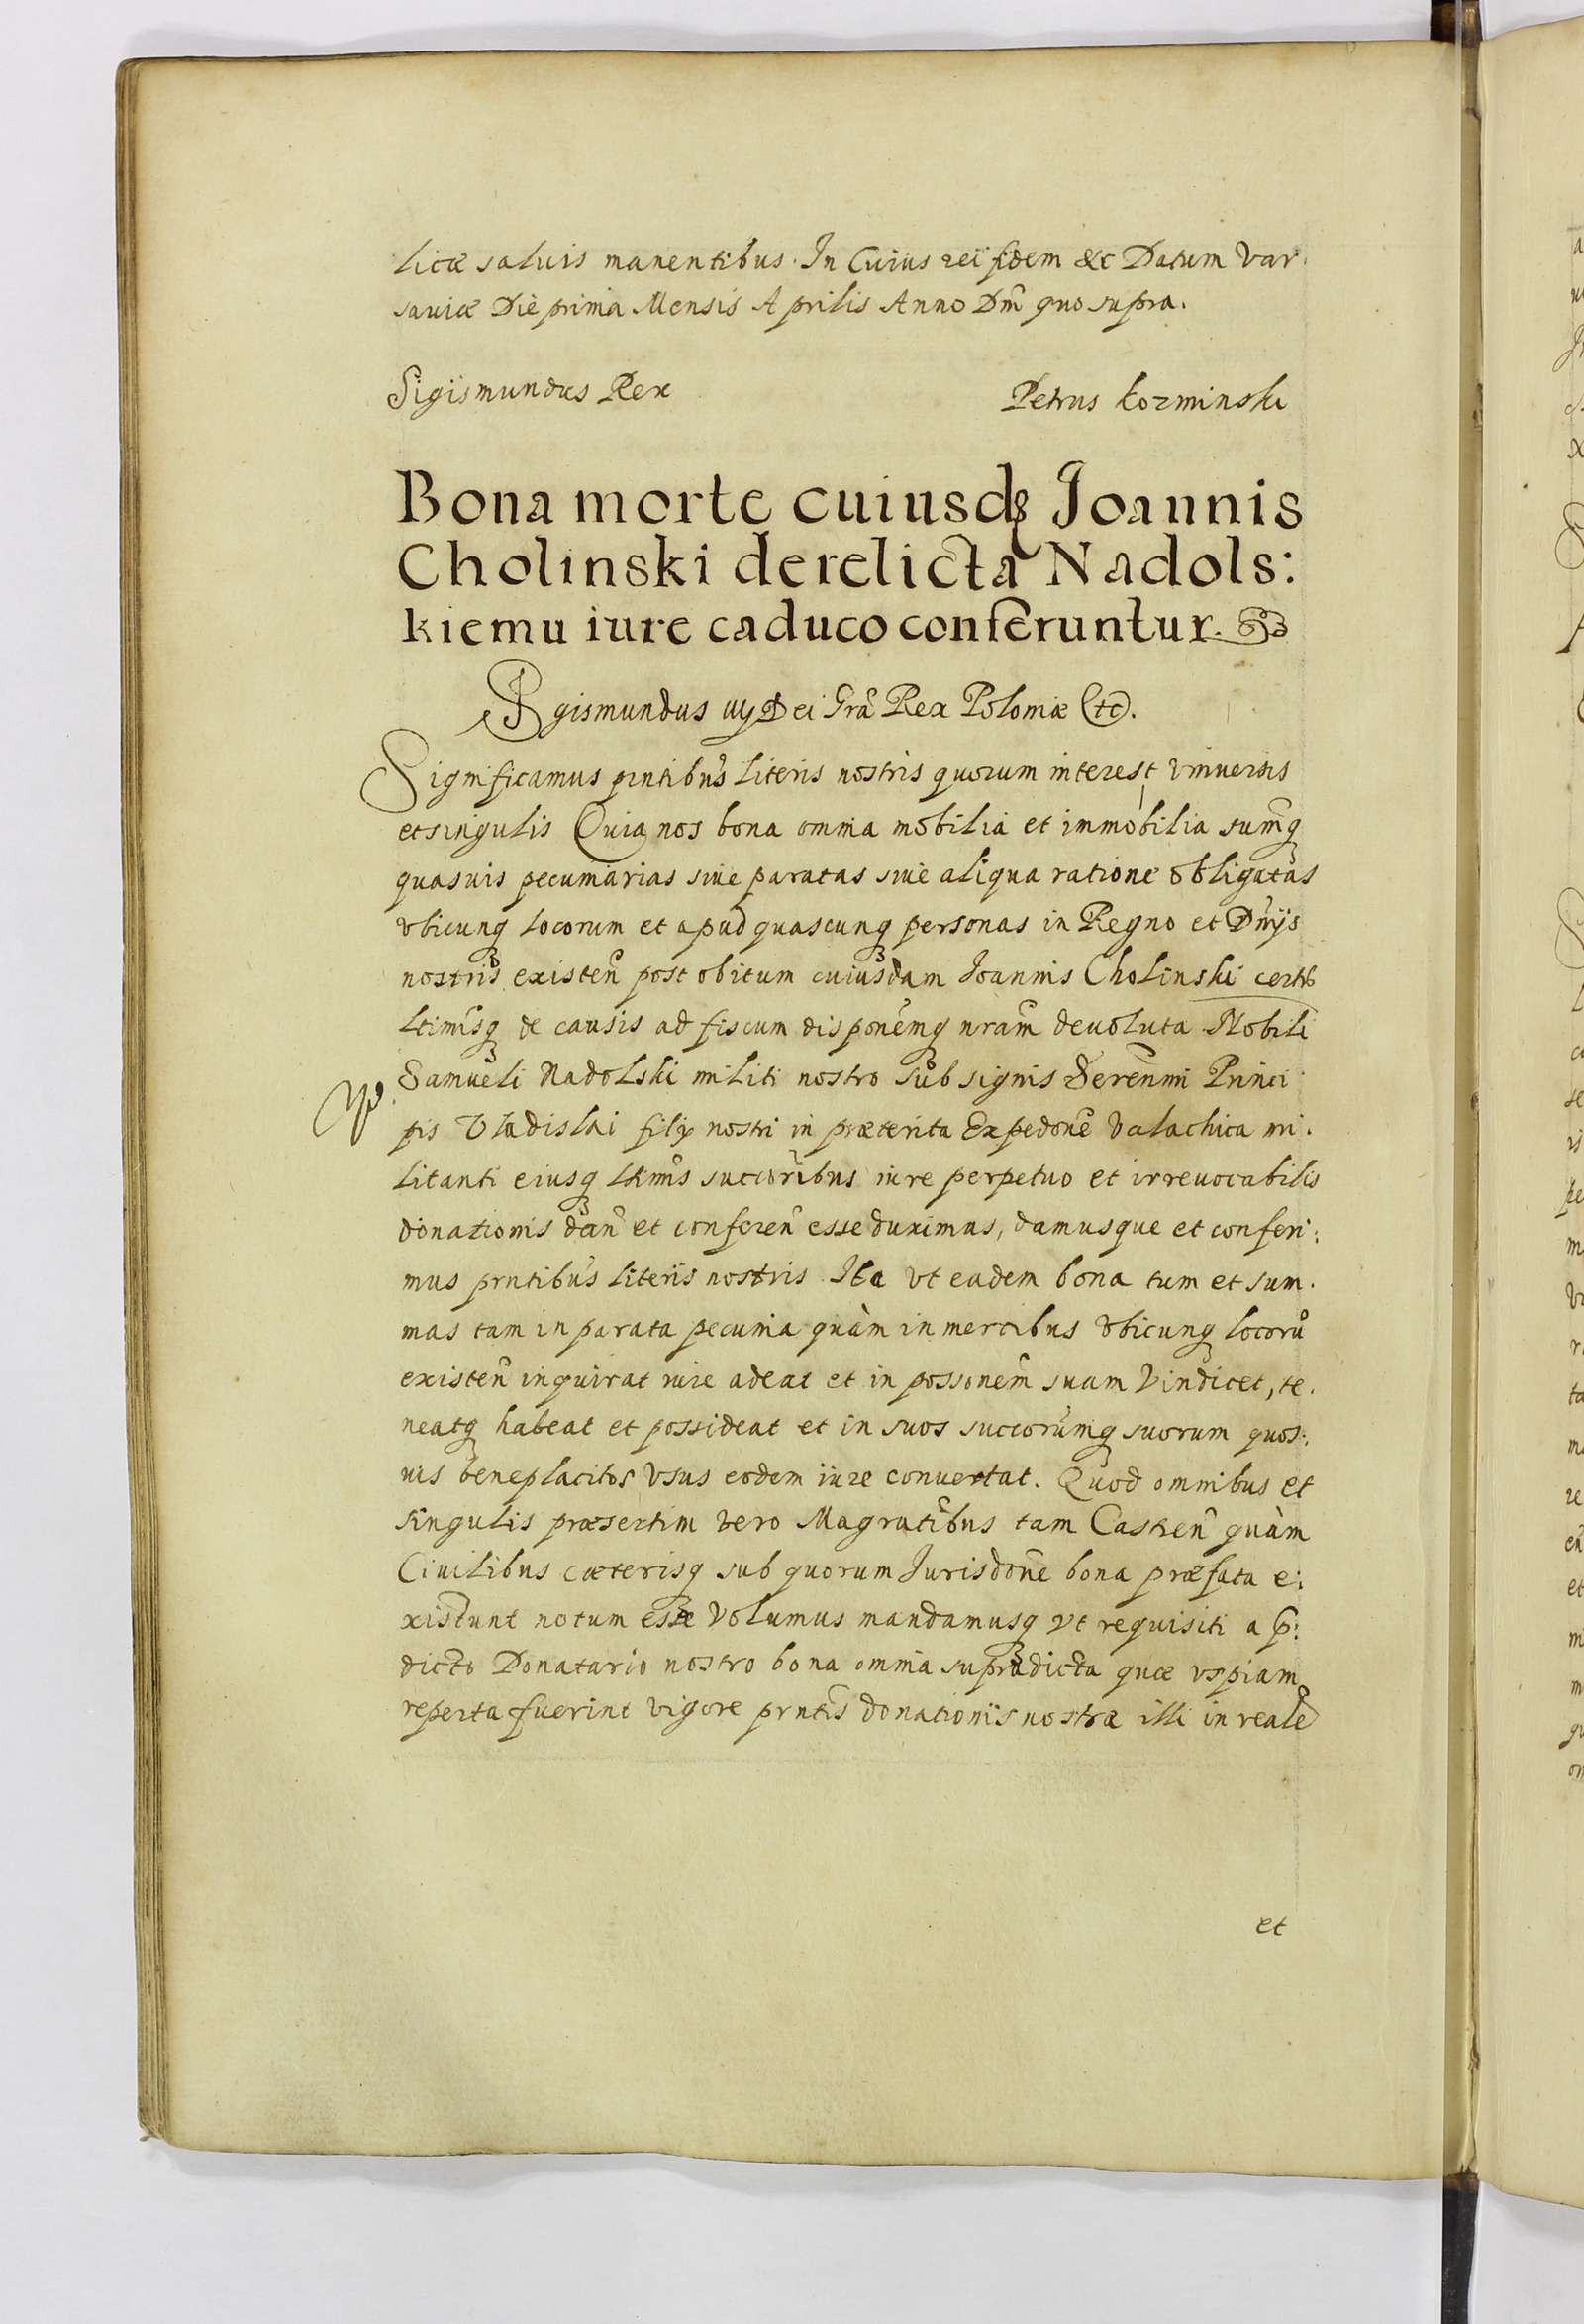 licæ saluis manentibus. In Cuius rei fidem &c Datum Var.
sauiæ Die prima Mensis Aprilis Anno Dm̃ quo supra.
Sigismundus Rex
Petrus Kozminski
Bona morte cuiusdꝫ Joannis
Cholinski derelicta Nadols:
kiemu iure caduco conferuntur.
Sigismundus iij Dei Grã Rex Poloniæ etc.
Significamus pr̃ntibus literis nostris quorum interest, vniuersis
et singulis Quia nos bona omnia mobilia et immobilia sum̃asq
quasuis pecuniarias siue paratas siue aliqua ratione obligatas
vbicunq locorum et apud quascunq personas in Regno et Dñijs
nostris existeñ post obitum cuiusdam Joannis Cholinski certis
ltimisq de causis ad fiscum disponẽmq nrãm deuoluta Nobili
Samueli Nadolski militi nostro sub signis Serenm̃i Princi
pis Vladislai filij nostri in præterita Expedõne Valachica mi.
litanti eiusq ltimis succoribus iure perpetuo et irreuocabilis
donationis dañ et confereñ esse duximus, damusque et conferi:
mus prntibus literis nostris Ita vt eadem bona tum et sum.
mas tam in parata pecunia quàm in mercibus vbicunq locorũ
existeñ inquirat iure adeat et in possonẽm suam Vindicet, te.
neatq habeat et possideat et in suos succorumq suorum quos:
uis beneplacitos vsus eodem iure conuertat. Quod omnibus et
singulis præsertim vero Magratibus tam Castreñ quàm
Ciuilibus cæterisq sub quorum Jurisdõne bona præfata e:
xistunt notum esse volumus mandamusq vt requisiti a p̃:
dicto Donatario nostro bona omnia supradicta quæ vspiam
reperta fuerint vigore prntis donationis nostræ illi in realẽ
et